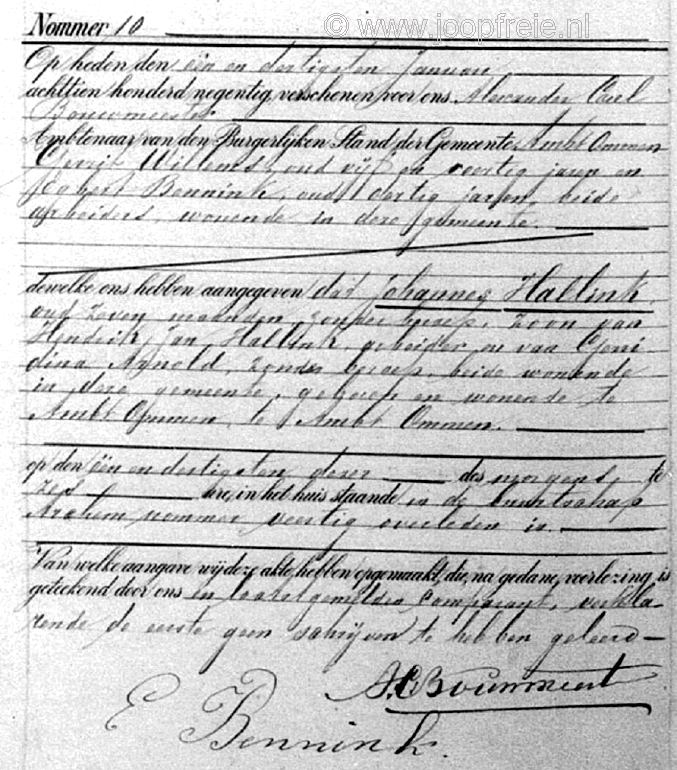 © www.joopfreie.nl
Nommer 10
Op heden den één en dertigsten Januari
achttien honderd negentig, verschenen voor ons, Alexander Carel
Bouwmeester
Ambtenaar van den Burgerlijken Stand der Gemeente Ambt Ommen
Gerrit Willems, oud vijf en veertig jaren en
Egbert Bennink, oud dertig jaren, beide
arbeiders, wonende in deze gemeente.
dewelke ons hebben aangegeven dat Johannes Hallink,
oud zeven maanden, zonder beroep, zoon van
Hendrik Jan Hallink arbeider en van
Arnold, zonder beroep, beide wonende
in deze gemeente, geboren en wonende te
Ambt Ommen, te Ambt Ommen.
op den één en dertigsten dezer des morgens, te
zes ure, in het huis staande in de buurtschap
Arriem nommer veertig overleden is.
Van welke aangave wij deze akte hebben opgemaakt, die, na gedane voorlezing, is
geteekend door ons en laatstgemelden comparant, verkla-
rende de eerste geen schrijven te hebben geleerd
E Bennink.